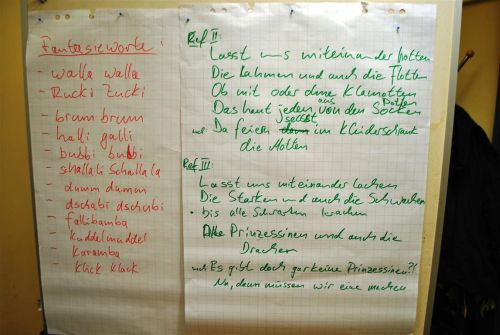 Fantasieworte:
- walla walla
- Rucki Zucki
- brum brum
- halli galli
- bubbi bubbi
- schallali Schallala
- dumm dumm
- dschabi dschubi
- fallibamba
- Kuddelmuddel
- Karamba
- Klick Klack
Ref II:
Lasst uns miteinander hotten
Die Lahmen und auch die Flotten
Ob mit oder ohne Klamotten
Das haut jeden aus von den Socken
Da feiern selbst im Kleiderschrank
die Motten
Ref III:
Lasst uns miteinander lachen
Die Starken und auch die Schwachen
bis alle Schwarten krachen
Alle Prinzessinen und auch die
Drachen
Es gibt doch gar keine Prinzessinen?!
Na, dann müssen wir eine machen